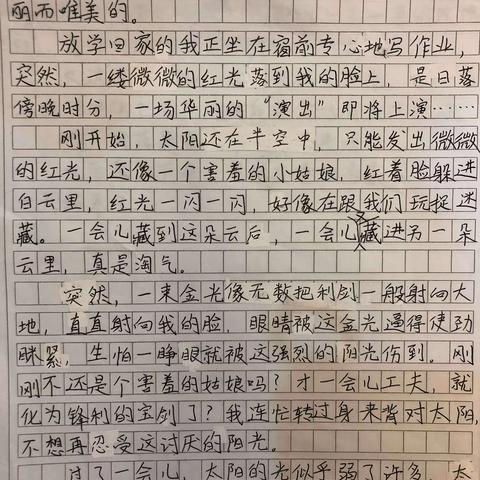 丽而唯美的。
放学回家的我正坐在窗前专心地写作业，
突然，一缕微微的红光落到我的脸上，是日落
傍晚时分，一场华丽的“演出”即将上演……
刚开始，太阳还在半空中，只能发出微微
的红光，还像一个害羞的小姑娘，红着脸躲进
白云里，红光一闪一闪，好像在跟我们玩捉迷
藏。一会儿藏到这朵云后，一会儿又藏进另一朵
云里，真是淘气。
突然，一束金光像无数把利剑一般射向大
地，直直射向我的脸，眼睛被这金光逼得使劲
眯紧，生怕一睁眼就被这强烈的阳光伤到。刚
刚不还是个害羞的姑娘吗？才一会儿工夫，就
化为锋利的宝剑了？我连忙转过身来背对太阳，
不想再忍受这讨厌的阳光。
过了一会儿，太阳的光似乎弱了许多，太